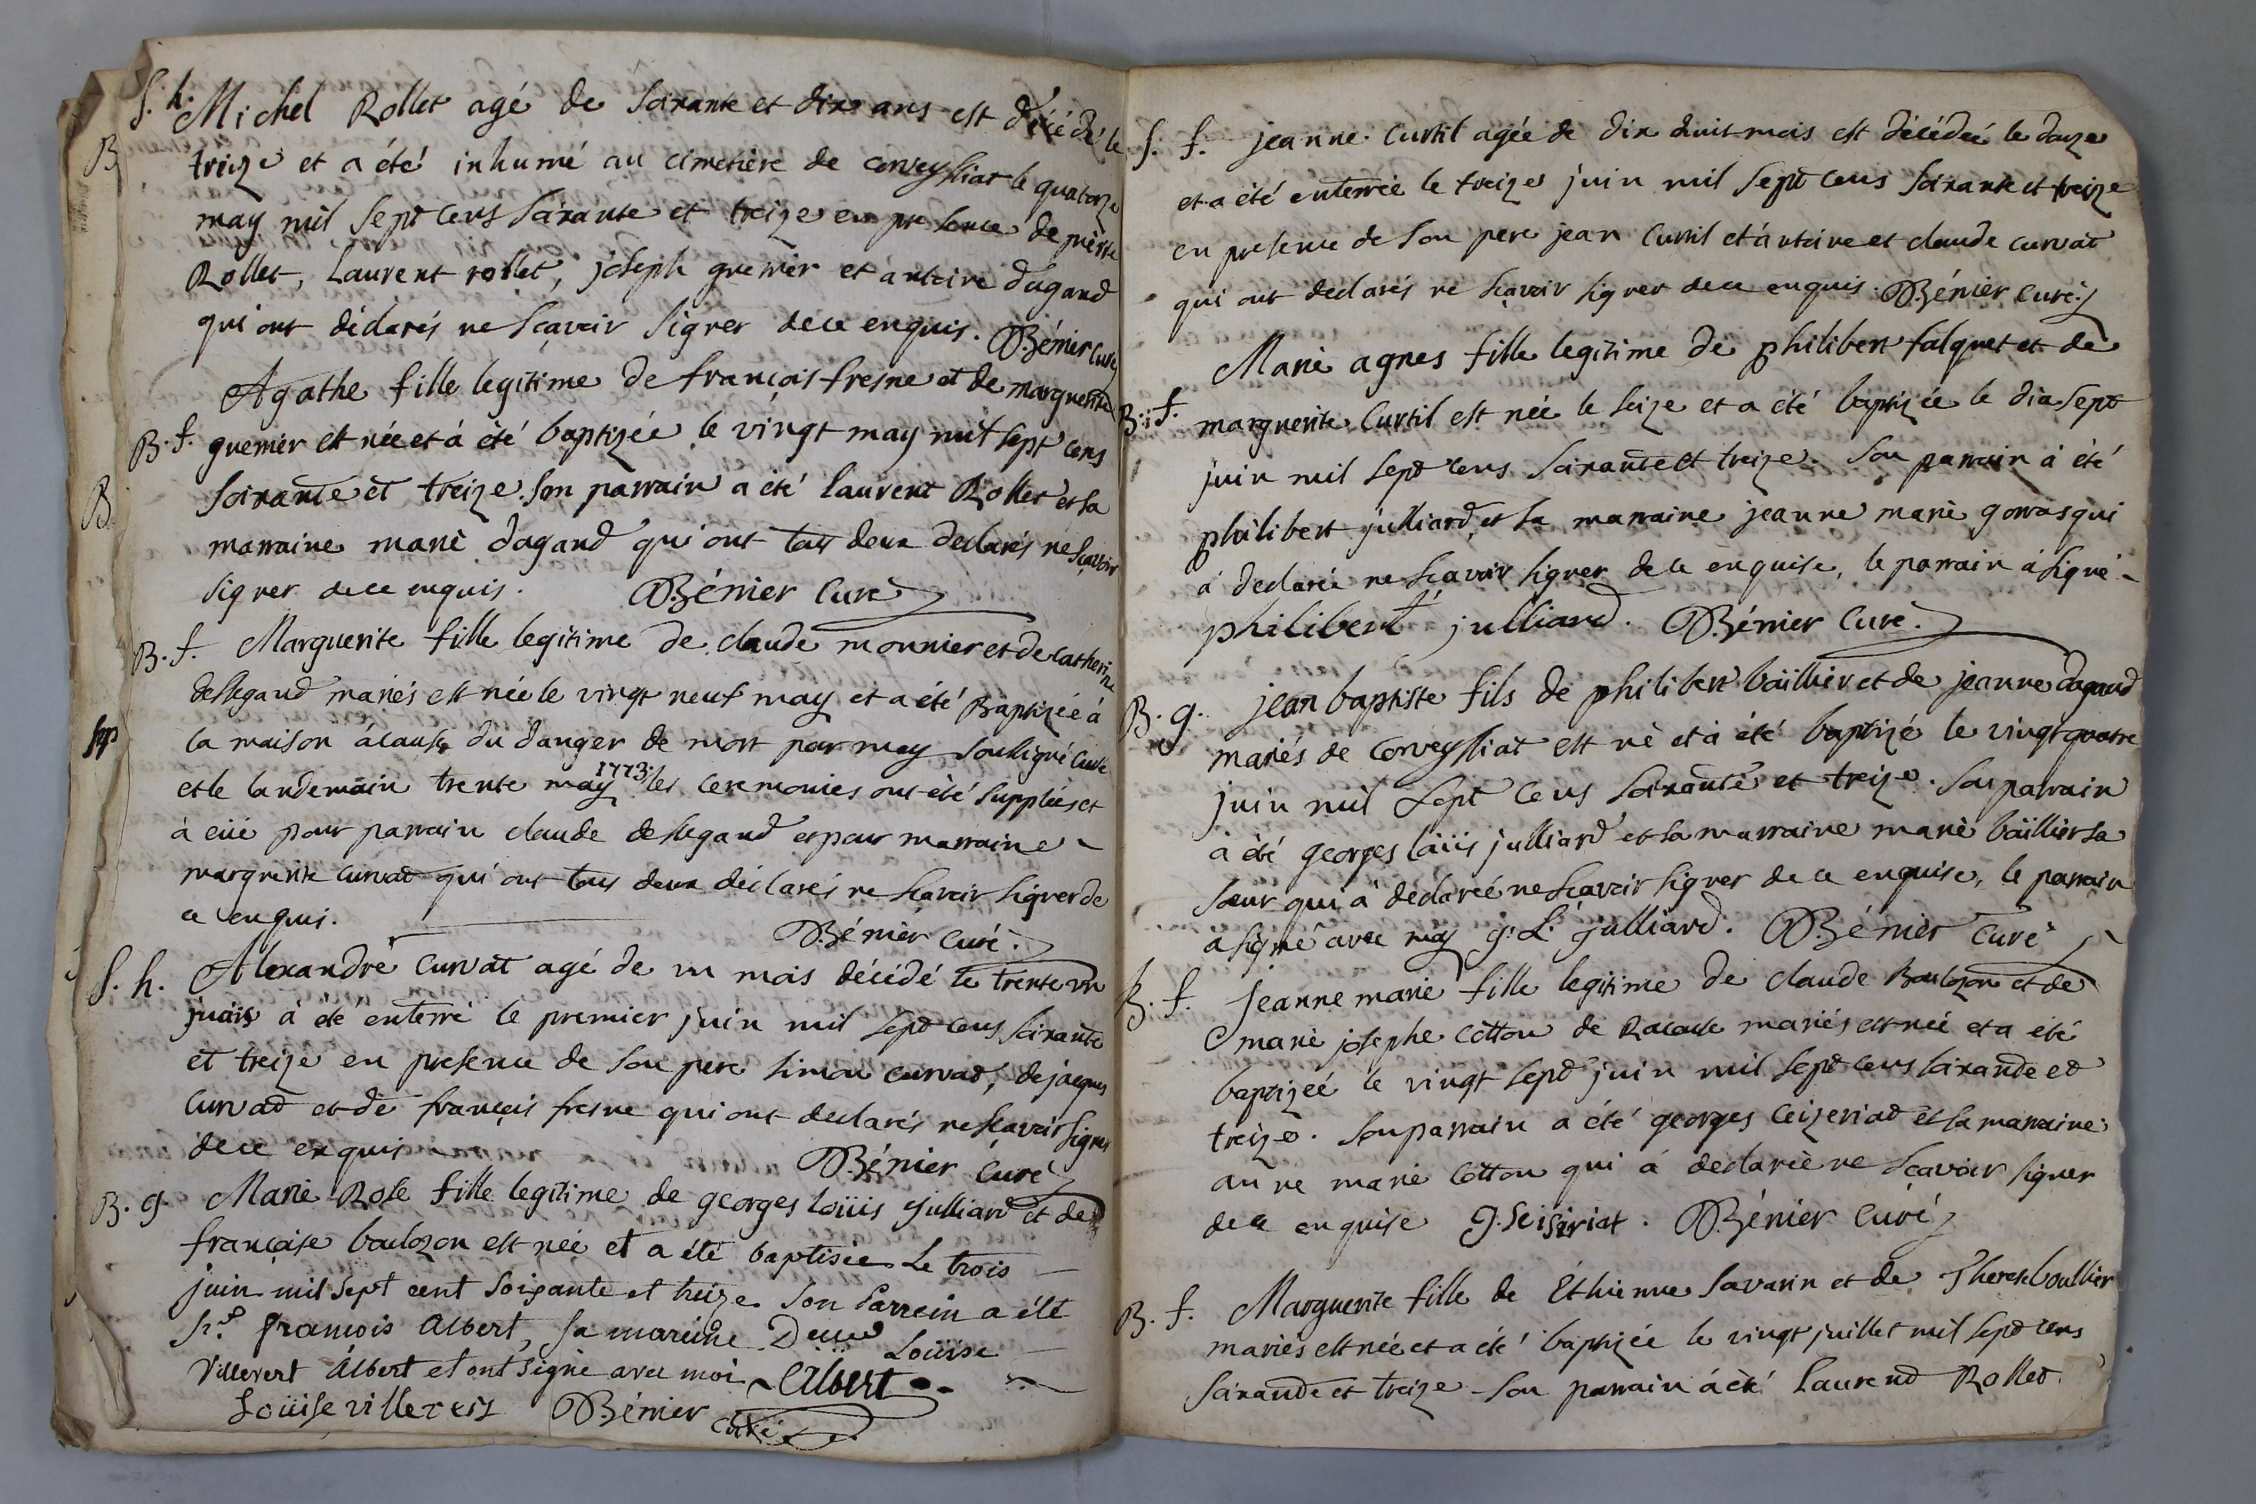 S. h. Michel Rollet agé de soixante et dix ans est décédé le
B
treize et a été inhumé au cimetière de Corveyssiat le quatorze
may mil sept cens soixante et treize en presence de pierre
Rollet, Laurent rollet, joseph guerrier et antoine dagand
qui ont déclarés ne sçavoir signer de ce enquis. Bénier Curé
Agathe fille legitime de françois fresne et de marguerite
B. f. guerrier est née et á été baptizée le vingt may mil sept cens
B
soixante et treize. Son parrain a été laurent Rollet et sa
marraine marie dagand qui ont tous deux declarés ne sçavoir
signer de ce enquis. Bénier Curé
B. f. Marguerite fille legitime de claude monnier et de catherine
dellegand mariés est née le vingt neuf may et a été Baptizée á
la maison ácause du danger de mort par moy soussigné Curé
et le landemain trente may 1773. les ceremonies ont été suppléés et
á eüe pour parrain claude dellegand et pour marraine
marguerite curvat qui ont tous deux déclarés ne sçavoir signer de
ce enquis. Bénier Curé.
S. h. Alexandre Curvat agé de un mois décédé le trente un
may á été enterré le premier juin mil sept cens soixante
et treize en presence de son pere simon curvat, de jacques
Curvat et de françois fresne qui ont declarés ne sçavoir signer
de ce enquis Bénier Curé
B. g. Marie Rose fille legitime de georges loüis julliard et de
françoise boulozon est née et a été baptisée Le trois
juin mil sept cent soixante et treize Son Parrein a été
Sr. françois Albert, sa mareine Delle Loüise
Villevert Albert et ont signé avec moi Albert
Loüise villevert Bénier Curé
S. f. jeanne Curtil agée de dix huit mois est décédée le douze
et a été enterrée le treize juin mil sept cens soixante et treize
en presence de son pere jean Curtil et antoine et claude curvat
qui ont declarés ne sçavoir signer de ce enquis. Bénier Curé
Marie agnes fille legitime de philibert falquet et de
B. f. marguerite Curtil est née le seize et a été baptizée le dix sept
juin mil sept cens soixante et treize. Son parrain á été
philibert julliard, et sa marraine jeanne marie gorras qui
á declarée ne sçavoir signer de ce enquise, le parrain á signé
philibert julliard. Bénier Curé.
B. g. jean baptiste fils de philibert baillier et de jeanne dagand
mariés de Corveyssiat est né et á été baptizé le vingt quatre
juin mil sept cens soixante et treize. Son parrain
á été georges loüis julliard et sa marraine marie baillier sa
sœur qui á declarée ne sçavoir signer de ce enquise, le parrain
á signé avec moy g. L. julliard. Bénier Curé
B. f. jeanne marie fille legitime de claude Boulozon et de
marie josephe Cotton de Racouse mariés est née et a été
baptizée le vingt sept juin mil sept cens soixante et
treize. Son parrain a été georges Ceizeriat et sa marraine
anne marie Cotton qui á declarée ne sçavoir signer
de ce enquise G. Seisiriat. Bénier Curé
B. f. Marguerite fille de Ethienne savarin et de Therese boullier
mariés est née et a été baptizée le vingt juillet mil sept cens
soixante et treize son parrain á été Laurend Rollet